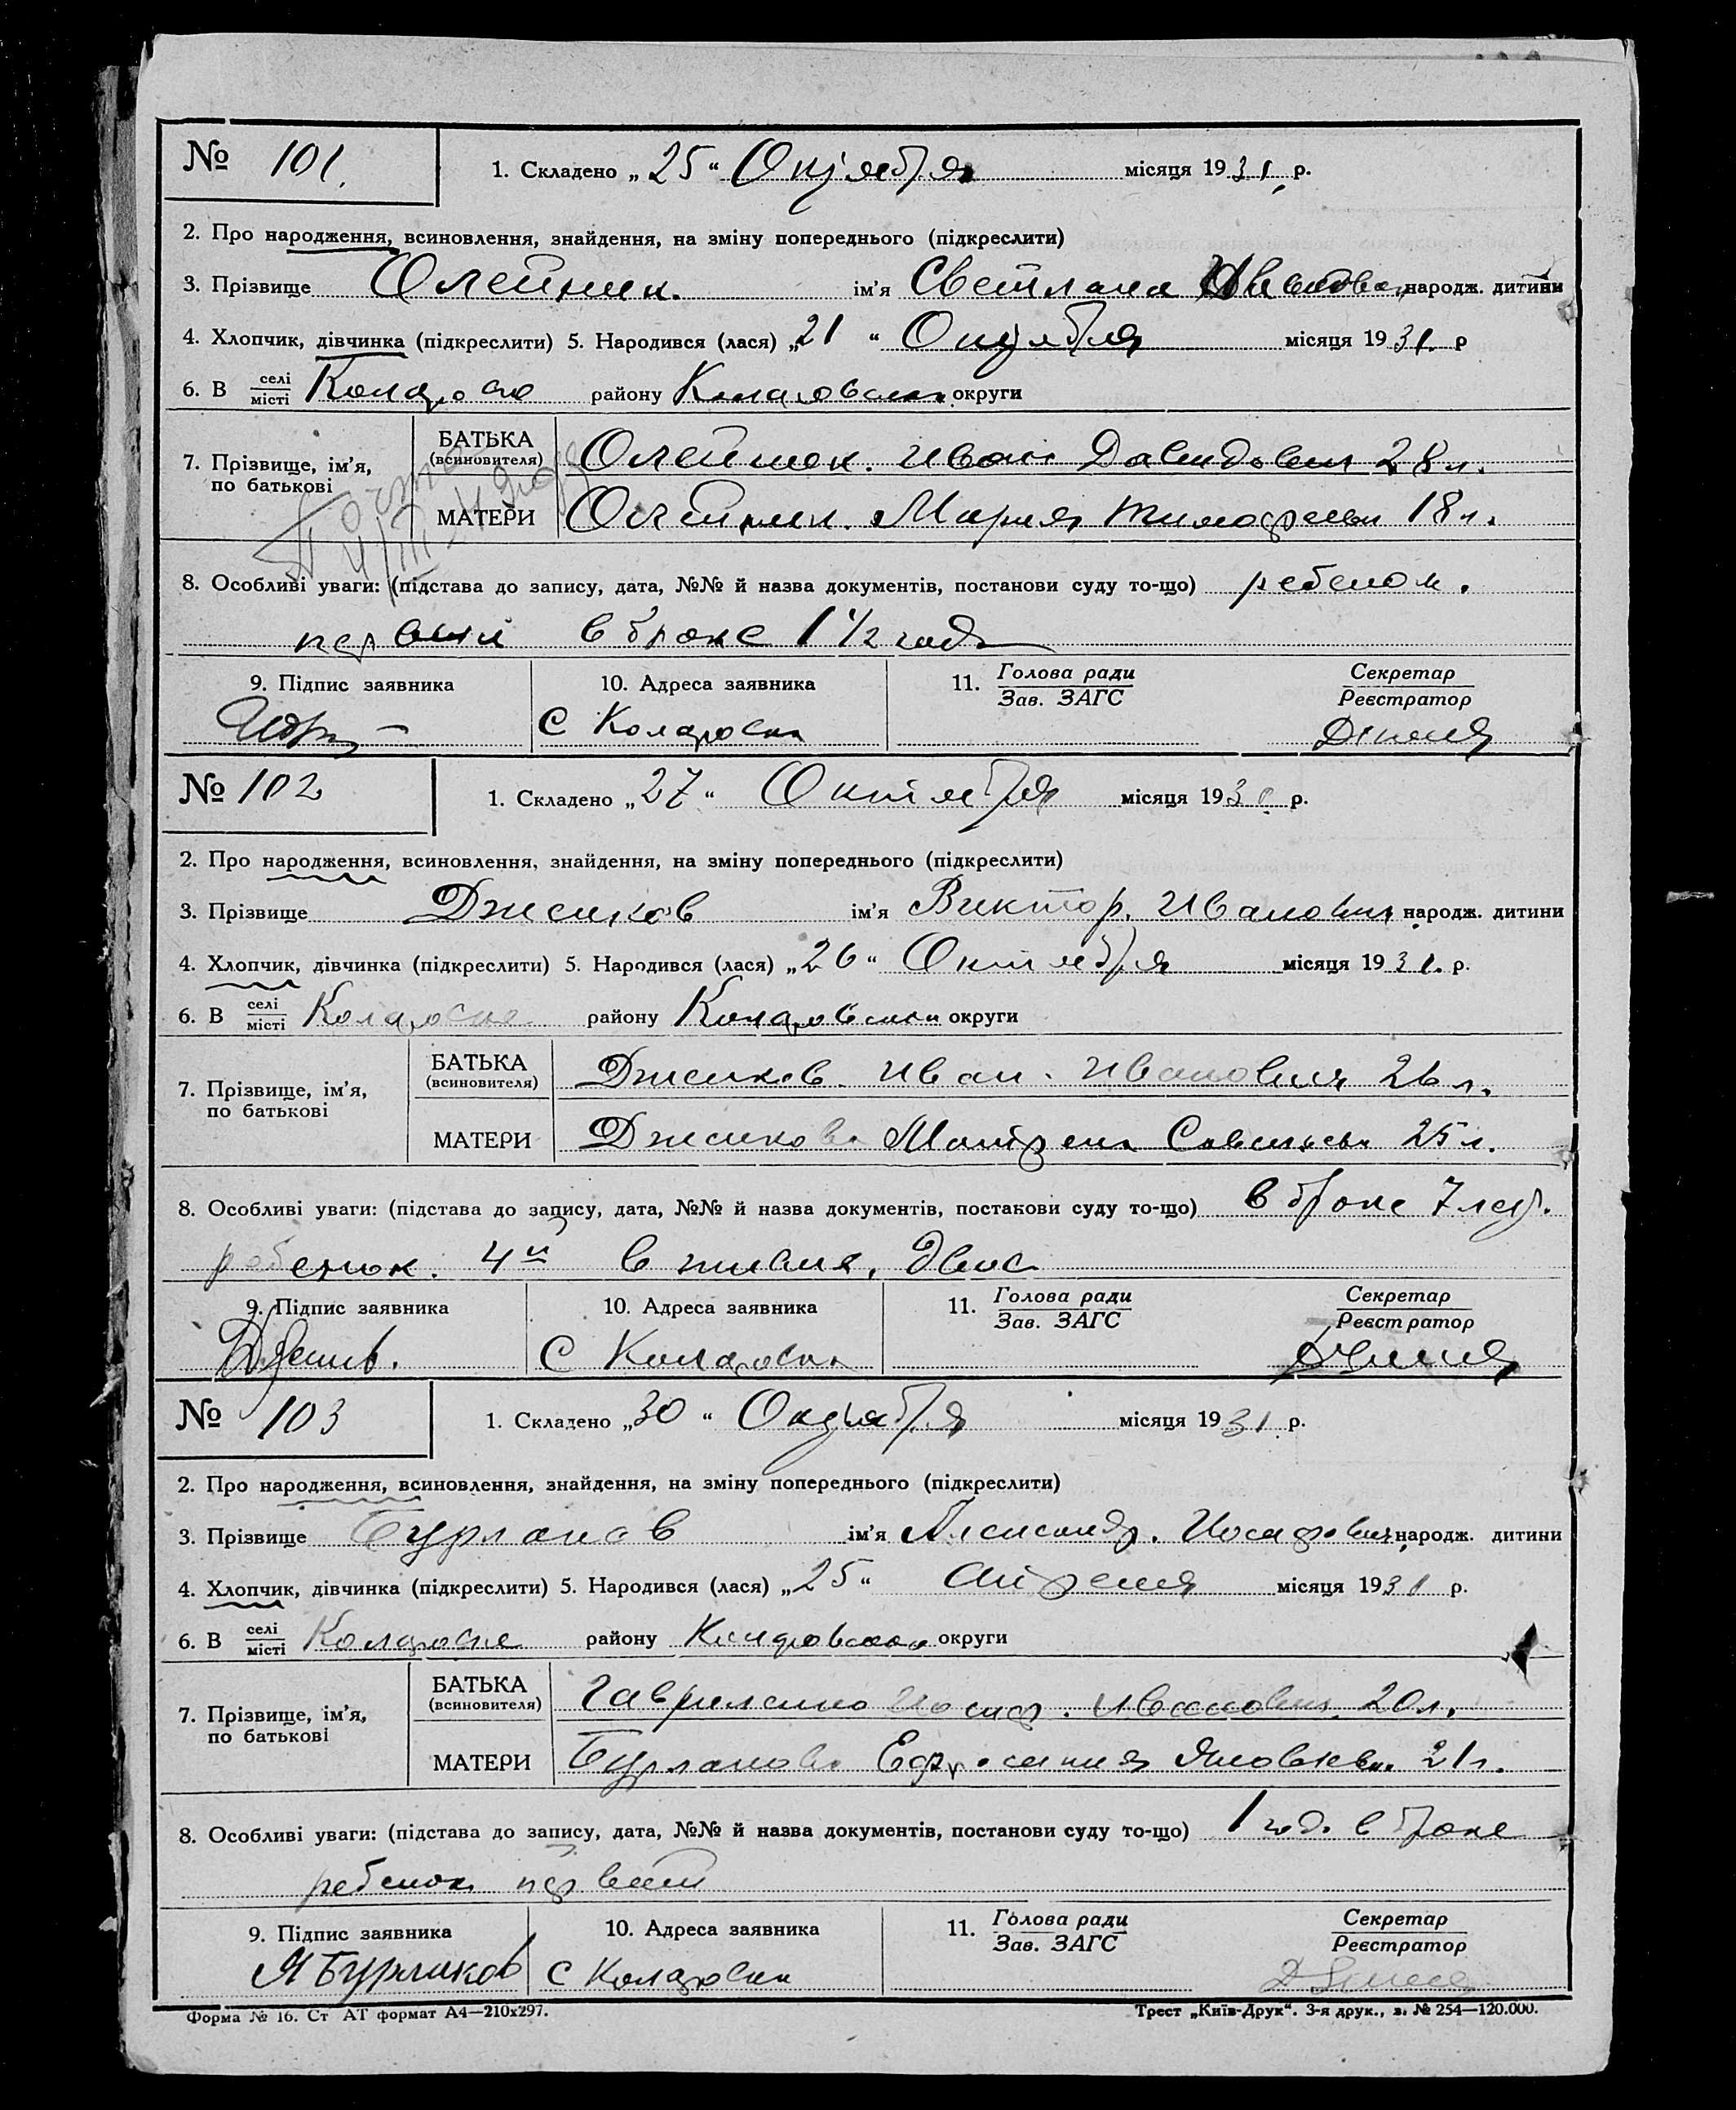 № 101. 1. Складено „25“ Октября місяця 1931 р.
2. Про народження, всиновлення, знайдення, на зміну попереднього (підкреслити)
3. Прізвище Олейник. ім'я Светлана Ивановна народж. дитини
4. Хлопчик, дівчинка (підкреслити) 5. Народився (лася) „21“ Октября місяця 1931. р
6. В селі/місті району округи
7. Прізвище, ім'я, по батькові
БАТЬКА (всиновителя) Олейник. Иван Давидович 28 л.
МАТЕРИ Олейник. Мария Тимофеевн 18 л.
8. Особливі уваги: (підстава до запису, дата, №№ й назва документів, постанови суду то-що) ребенок.
первый в браке 1 1/2 года
9. Підпис заявника 10. Адреса заявника 11. Голова ради/Зав. ЗАГС Секретар/Реєстратор
С Коларовка
№ 102 1. Складено „27“ Октября місяця 1931 р.
2. Про народження, всиновлення, знайдення, на зміну попереднього (підкреслити)
3. Прізвище Дженков ім'я Виктор. Иванович народж. дитини
4. Хлопчик, дівчинка (підкреслити) 5. Народився (лася) „26“ Октября місяця 1931. р.
6. В селі/місті району округи
7. Прізвище, ім'я, по батькові
БАТЬКА (всиновителя) Дженков. Иван. Иванович 26 л.
МАТЕРИ Дженкова Матрена Савельевн 25 л.
8. Особливі уваги: (підстава до запису, дата, №№ й назва документів, постанови суду то-що) в браке 7 лет.
ребенок. 4й в живых, двое
9. Підпис заявника 10. Адреса заявника 11. Голова ради/Зав. ЗАГС Секретар/Реєстратор
С Коларовка
№ 103 1. Складено „30“ Октября місяця 1931 р.
2. Про народження, всиновлення, знайдення, на зміну попереднього (підкреслити)
3. Прізвище Бурлаков ім'я Александр. Иосифович народж. дитини
4. Хлопчик, дівчинка (підкреслити) 5. Народився (лася) „25“ Апреля місяця 1931 р.
6. В селі/місті району округи
7. Прізвище, ім'я, по батькові
БАТЬКА (всиновителя) Гавриленко Иосиф. Иванович. 20 л.
МАТЕРИ Бурлакова Ефросиния Яковлевн. 21 г.
8. Особливі уваги: (підстава до запису, дата, №№ й назва документів, постанови суду то-що) 1 год. в браке
ребенок первый
9. Підпис заявника 10. Адреса заявника 11. Голова ради/Зав. ЗАГС Секретар/Реєстратор
Я Бурлаков С Коларовка
Форма № 16. Ст АТ формат А4—210х297. Трест „Київ-Друк“. 3-я друк., з. № 254—120.000.